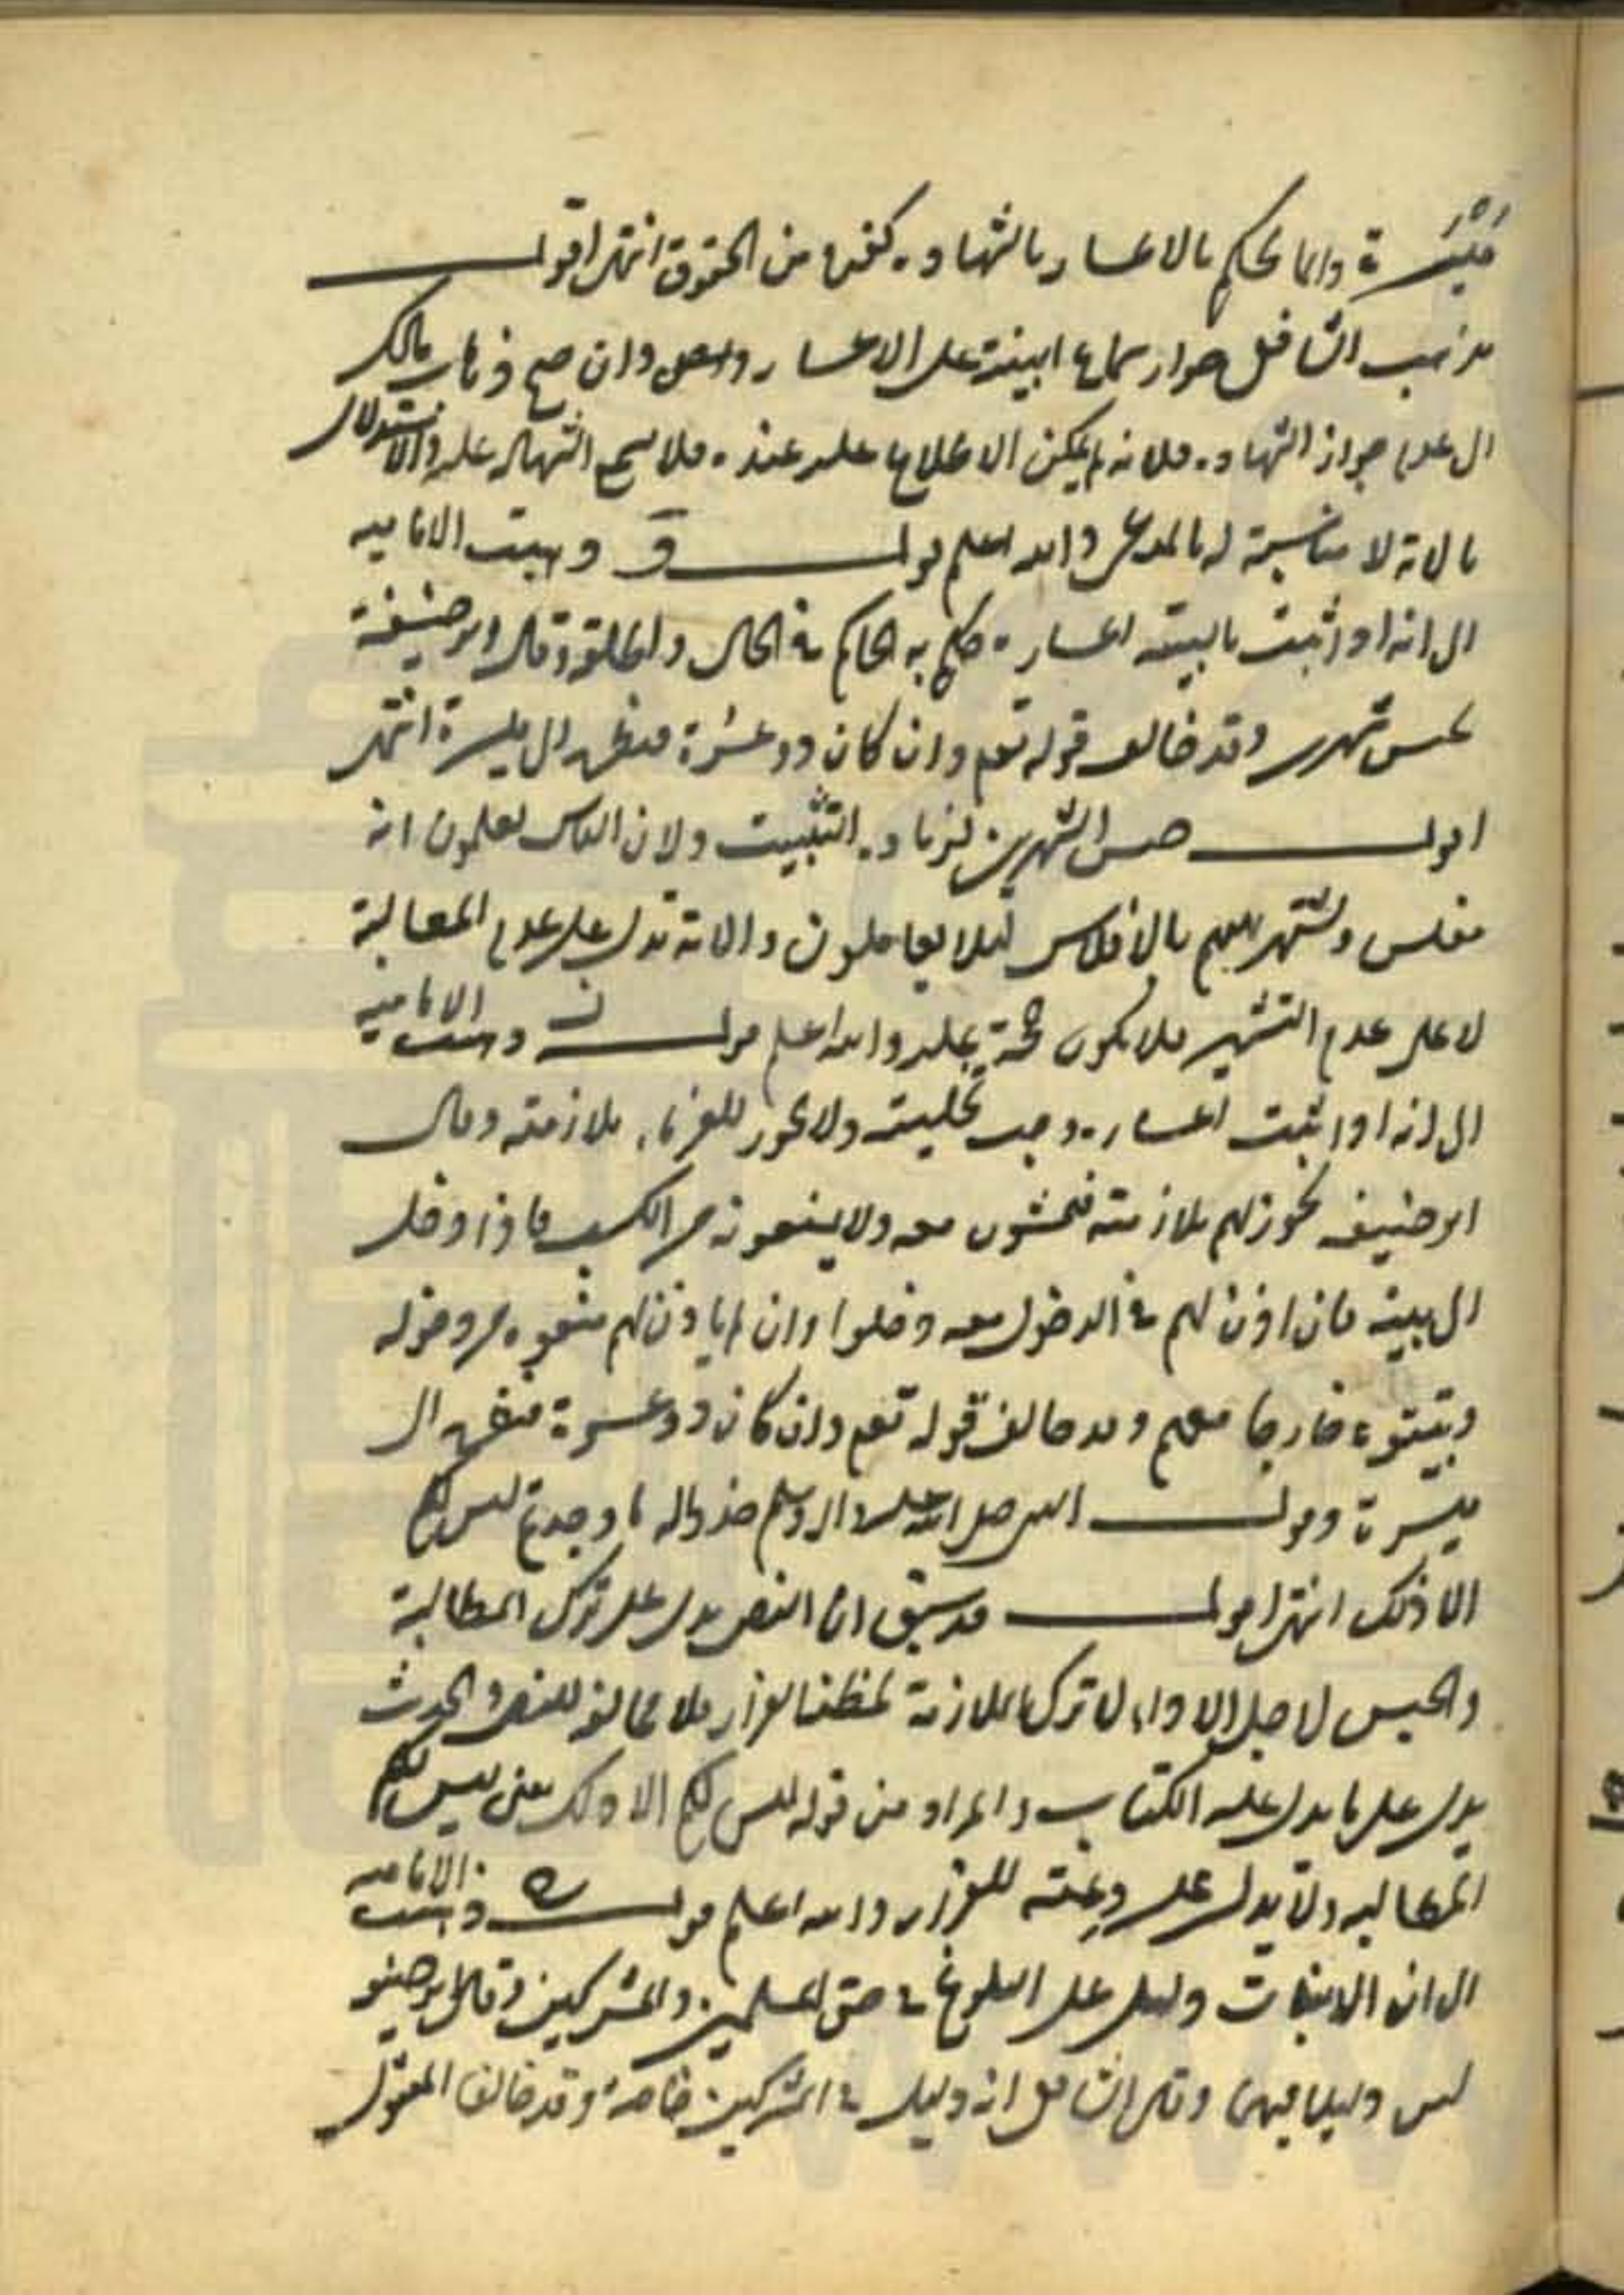 مَيْسَرَة وانما يحكم بالاعسار بالشهادة كغيره من الحقوق انتهى اقول
مذهب الشافعي جواز سماع البينة على الاعسار وان صح ذهاب مالك
الى عدم جواز الشهادة فلانه لم يمكن الاطلاع عليه عنده فلا يسمع الشهادة عليه والاستدلال
بالاية لا مناسبة له بالمدعى والله اعلم قول و ذهبت الامامية
الى انه اذا ثبت بالبينة اعساره حكم به الحاكم في الحال واطلقه وقال ابو حنيفة
يحبس شهرين وقد خالف قوله تعم وان كان ذو عسرة فنظرة الى ميسرة انتهى
اقول حبس الشهرين لزيادة التثبيت ولان الناس يعلمون انه
مفلس ويشتهر بينهم بالافلاس ليلا يعاملون والاية تدل على عدم المطالبة
لا على عدم التشهير فلا يكون حجة عليه والله اعلم قول ن وذهبت الامامية
الى انه اذا ثبت اعساره وجب تخليته ولا يجوز للغرماء ملازمته وقال
ابو حنيفه يجوز لهم ملازمته فيمشون معه ولا يمنعونه من الكسب فاذا دخل
الى بيته فان اذن لهم في الدخول معه دخلوا وان لم ياذن لهم منعوه من دخوله
وبيتوه خارجا معهم وقد خالف قوله تعم وان كان ذو عسرة فنظرة الى
ميسرة وقول النبي صلى الله عليه واله وسلم خذوا له ما وجدتم ليس لكم
الا ذلك انتهى اقول قد سبق ان النص يدل على ترك المطالبة
والحبس لاجل الاداء لا ترك الملازمة لمظنة الفرار فلا مخالفة للنص والحديث
يدل على ما يدل عليه الكتاب والمراد من قوله ليس لكم الا ذلك يعنى ليس لكم
المطالبه ولا يدل على دعته للفرار والله اعلم قول ه وذهبت الامامية
الى ان الانبات دليل على البلوغ في حق المسلمين والمشركين وقال ابو حنيفه
ليس دليلا فيهما وقال الشافعي انه دليل في المشركين خاصة وقد خالفا المعقول